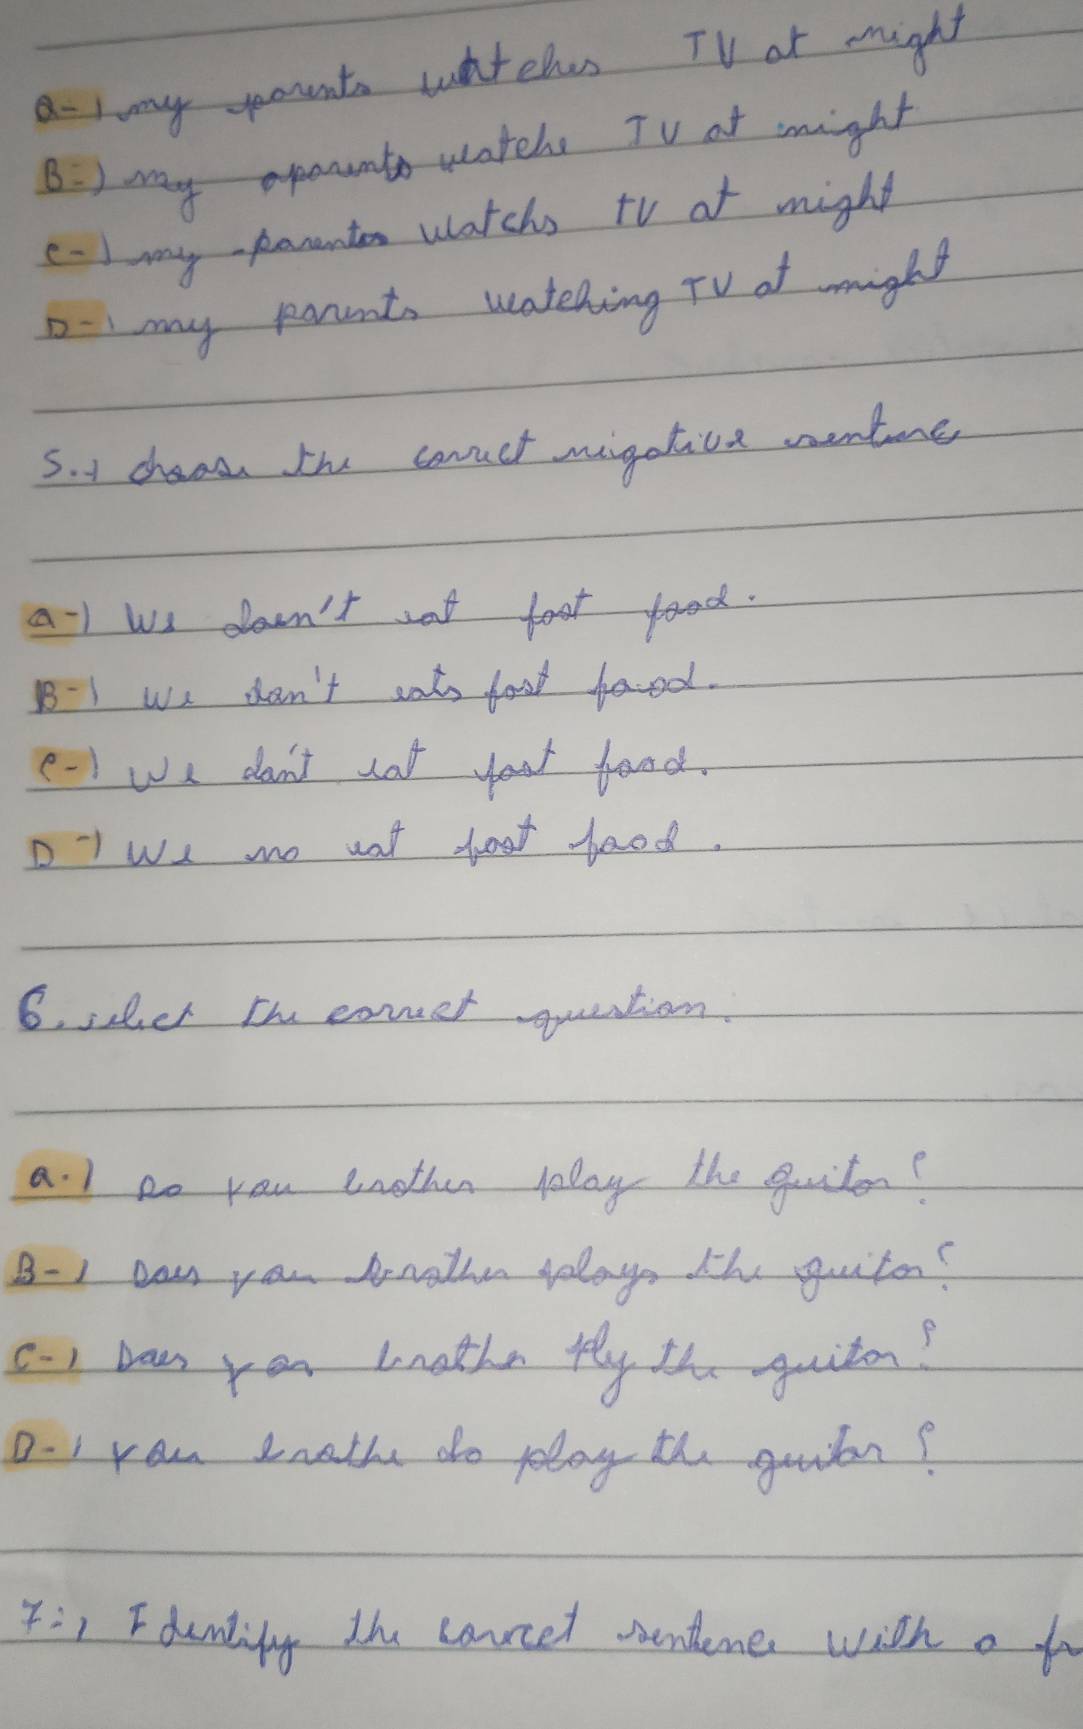 a-) my parents watches TV at night
B-) my parents watche TV at night
C-) my parents watchs TV at night
D-) my parents watching TV at night
5.-) choose the correct negative sentence
a-) We doesn't eat fast food.
B-) We don't eats fast food.
C-) We don't eat fast food.
D-) We no eat fast food.
6. select the correct question.
a.) Do you brother play the guitar?
B-) Does you brother plays the guitar?
C-) Does you brother ply the guitar?
D-) you brothe do play the guitar?
7-) Identify the correct sentence with a fr